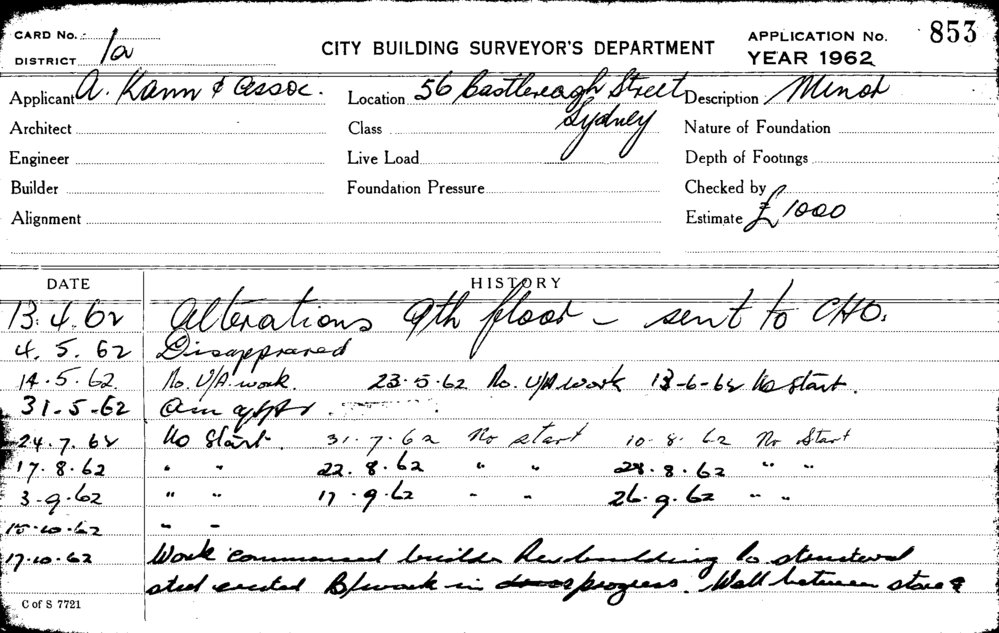 CARD No. 1a CITY BUILDING SURVEYOR'S DEPARTMENT APPLICATION No. 853
DISTRICT YEAR 1962
Applicant A. Kann & Assoc. Location 56 Castlereagh Street Description Minor
Architect Class Sydney Nature of Foundation
Engineer Live Load Depth of Footings
Builder Foundation Pressure Checked by
Alignment Estimate £1000
DATE HISTORY
13.4.62 Alterations 9th floor - sent to CHO.
4.5.62 Disapproved
14.5.62. No. U/A work. 23-5-62 No. U/A work 13-6-62 No start.
31.5-62 Am
24.7.62 No start. 31.7.62 No start 10.8.62 No Start
17.8.62 " " 22.8.62 " " 28.8.62 " "
3-9.62 " " 17.9.62 " " 26.9.62 " "
15.10.62 " "
17.10.62 Work commenced building No structural
steel erected B/work in progress. Wall between store &
C of S 7721